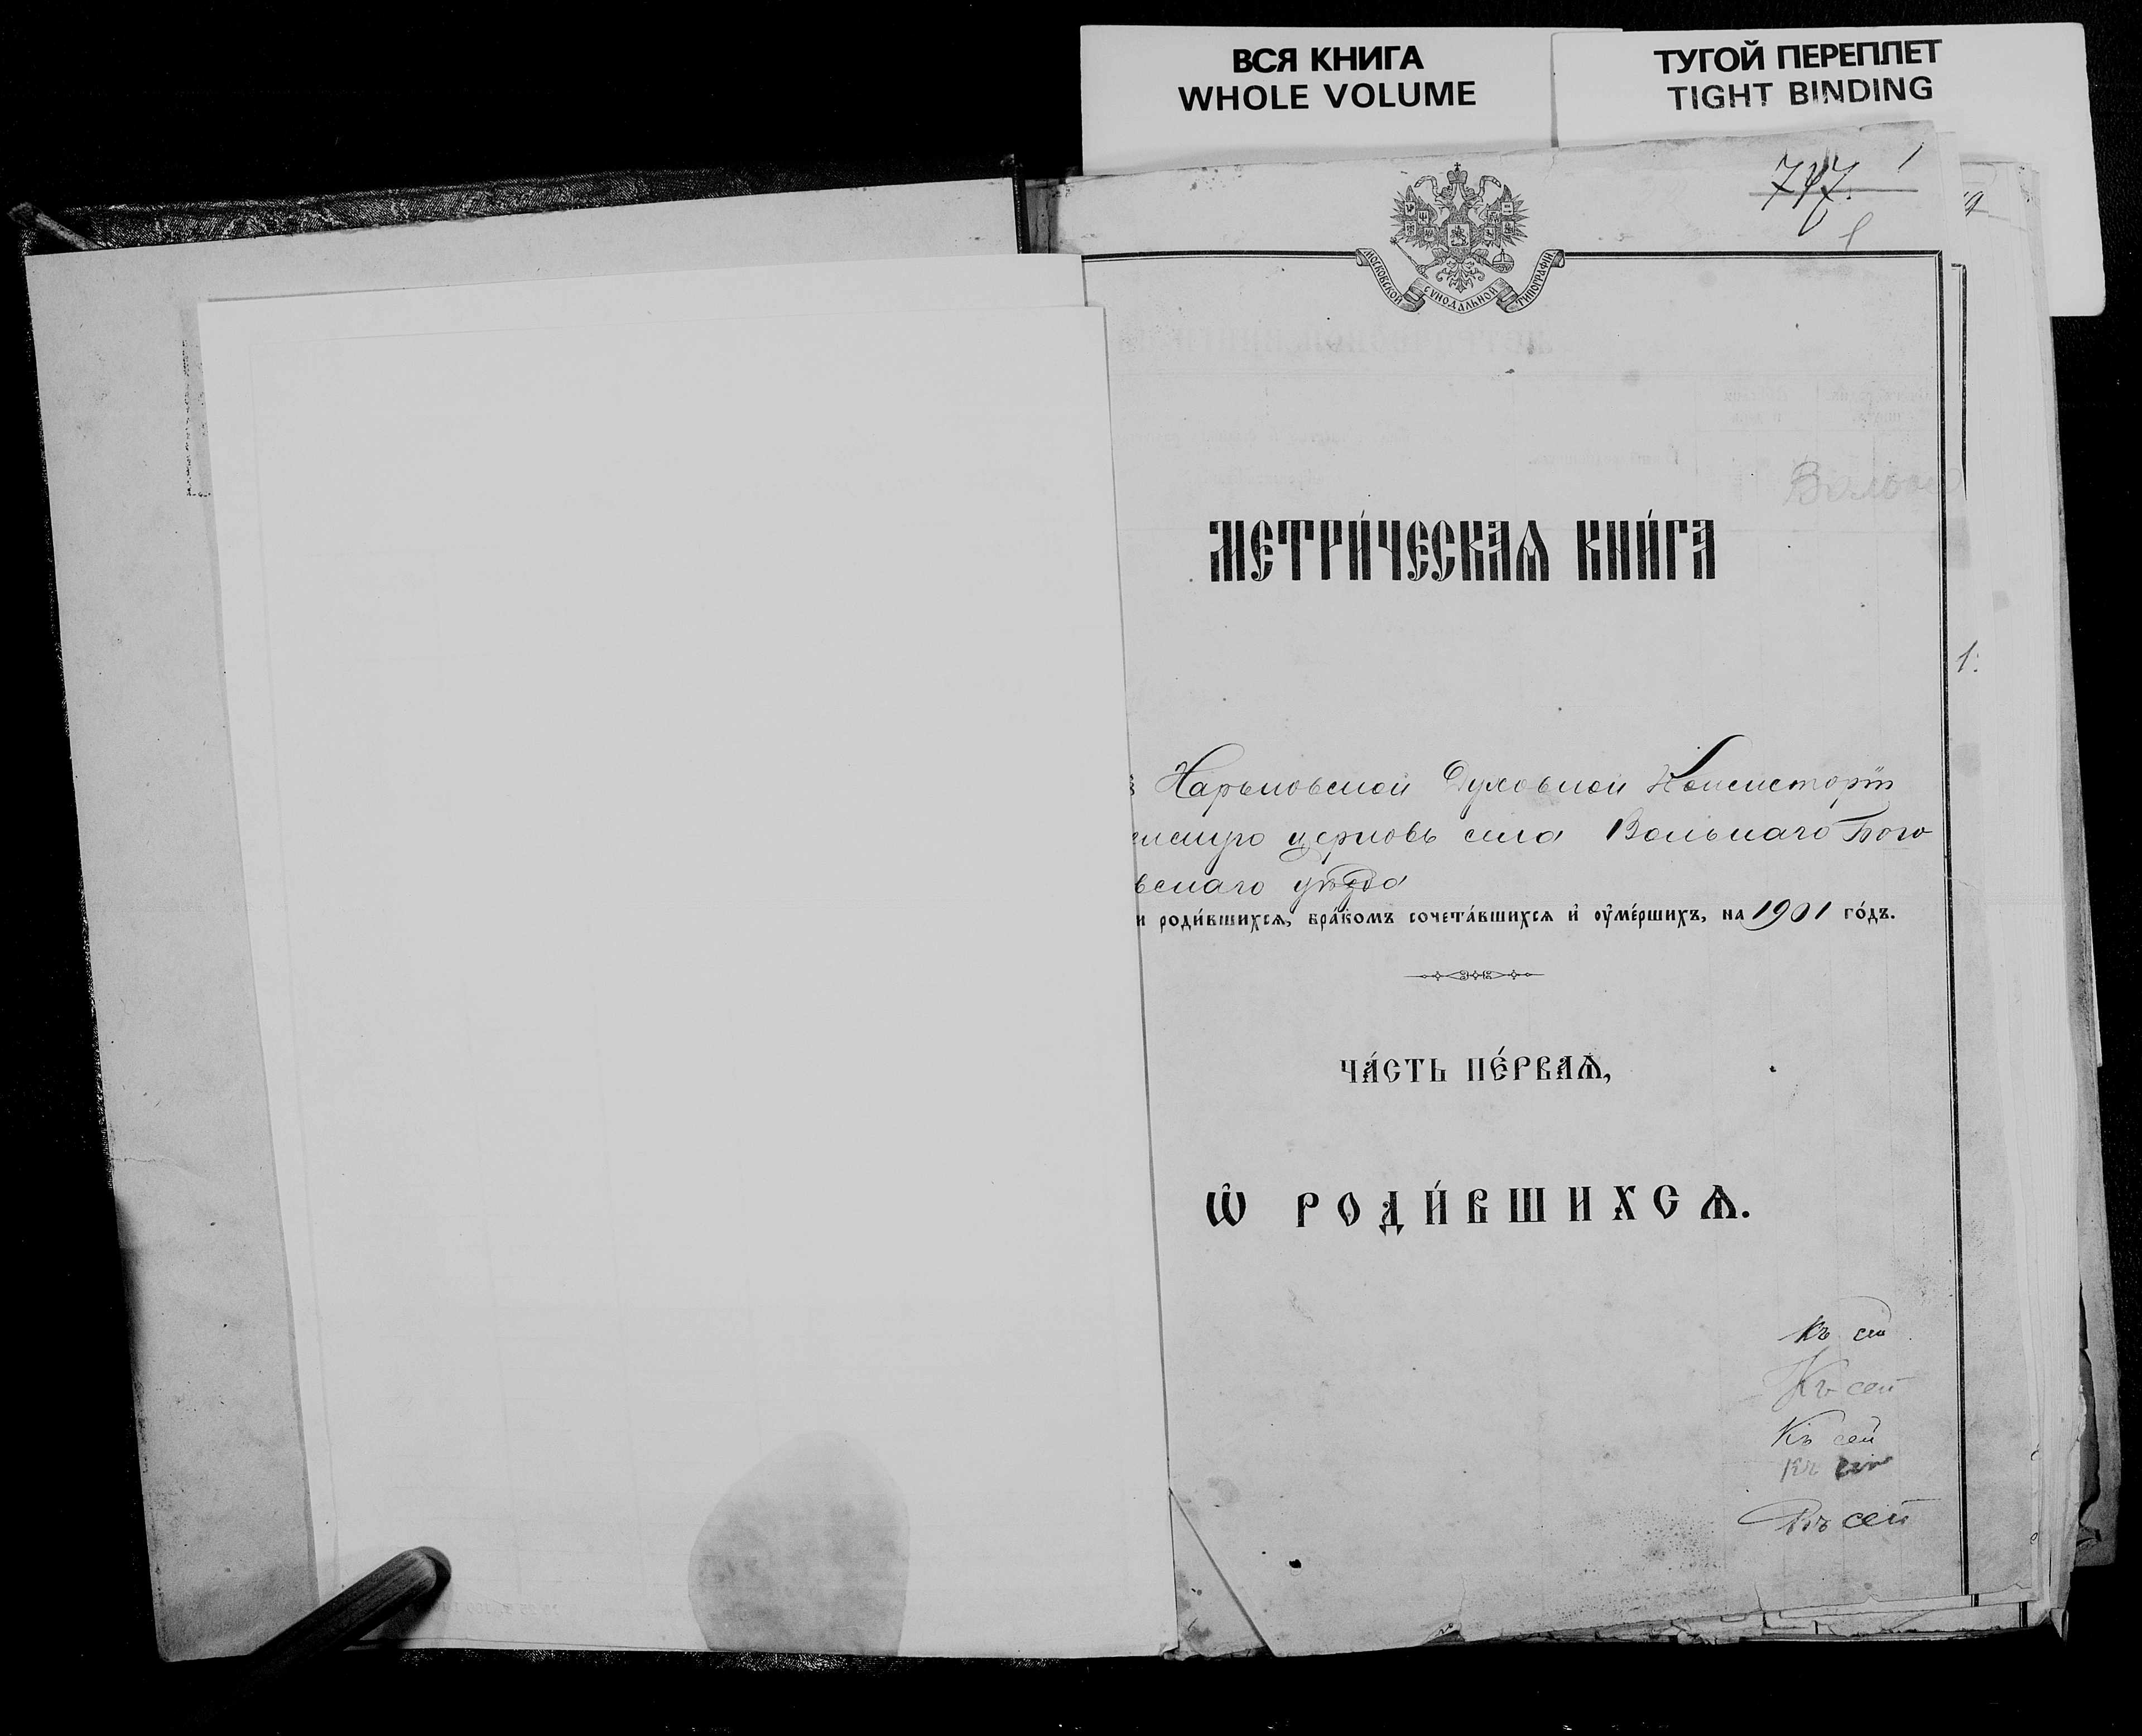 ВСЯ КНИГА
WHOLE VOLUME
ТУГОЙ ПЕРЕПЛЕТ
TIGHT BINDING
747. 1
МОСКОВСКОЙ СѴНОДАЛЬНОЙ ТИПОГРАФІИ
МЕТРИ́ЧЕСКАѦ КНИ́ГА
Харьковской Духовной Консисторіи
церковь села Вольнаго Бого
вскаго уѣзда
и роди́вшихсѧ, бра́комъ сочета́вшихсѧ и҆ ᲂу҆ме́ршихъ, на 1901 го́дъ.
ЧА́СТЬ ПЕ́РВАѦ,
Ѽ РОДИ́ВШИХСѦ.
1.
Къ сей
Къ сей
Къ сей
Къ сей
Къ сей